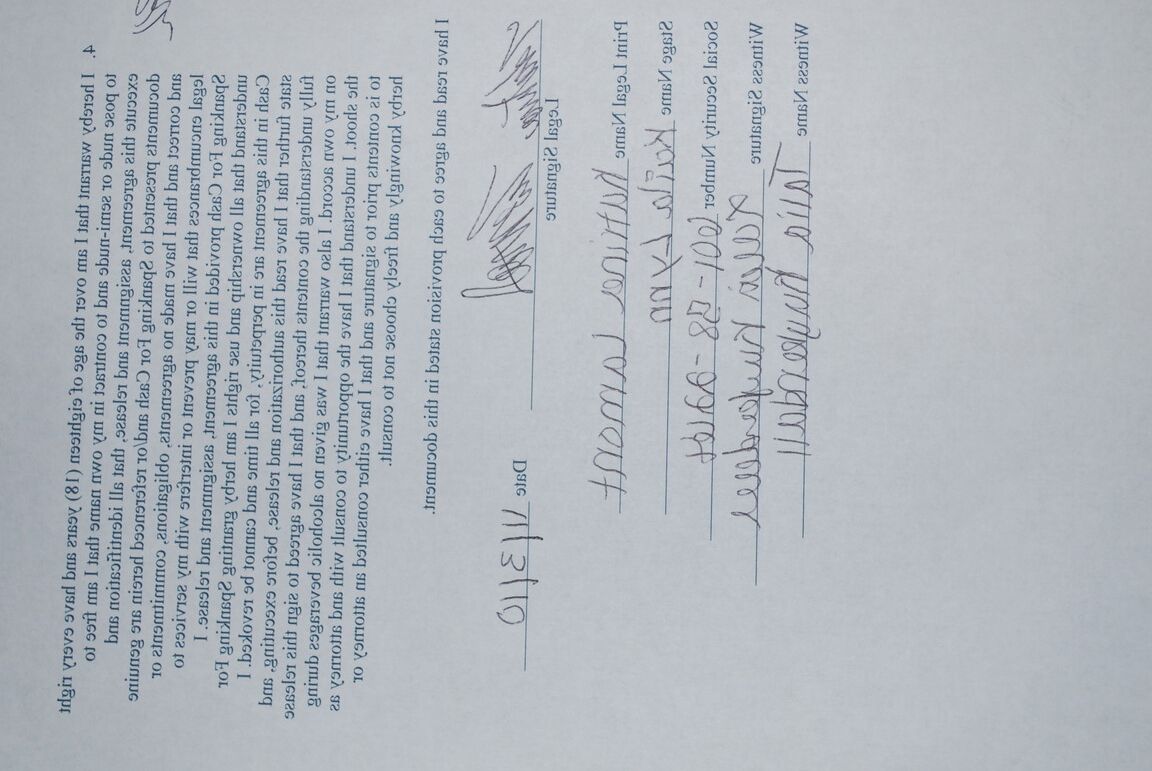 4. I hereby warrant that I am over the age of eighteen (18) years and have every right
to pose nude or semi-nude and to contract in my own name that I am free to
execute this agreement, assignment and release, that all identification and
documents presented to Spanking For Cash and/or referenced herein are genuine
and correct and that I have made no agreements, obligations, commitments or
legal encumbrances that will or may prevent or interfere with my services to
Spanking For Cash provided in this agreement, assignment and release. I
understand that all ownership and use rights I am hereby granting Spanking For
Cash in this agreement are in perpetuity, for all time and cannot be revoked. I
state further that I have read this authorization and release, before executing, and
fully understanding the contents thereof, and that I have agreed to sign this release
on my own accord. I also warrant that I was given no alcoholic beverages during
the shoot. I understand that I have the opportunity to consult with and attorney as
to is contents prior to signature and that I have either consulted an attorney or
hereby knowingly and freely choose not to consult.
I have read and agree to each provision stated in this document.
Date 11/3/10
Legal Signature
Print Legal Name
Stage Name
Social Security Number
Witness Signature
Witness Name